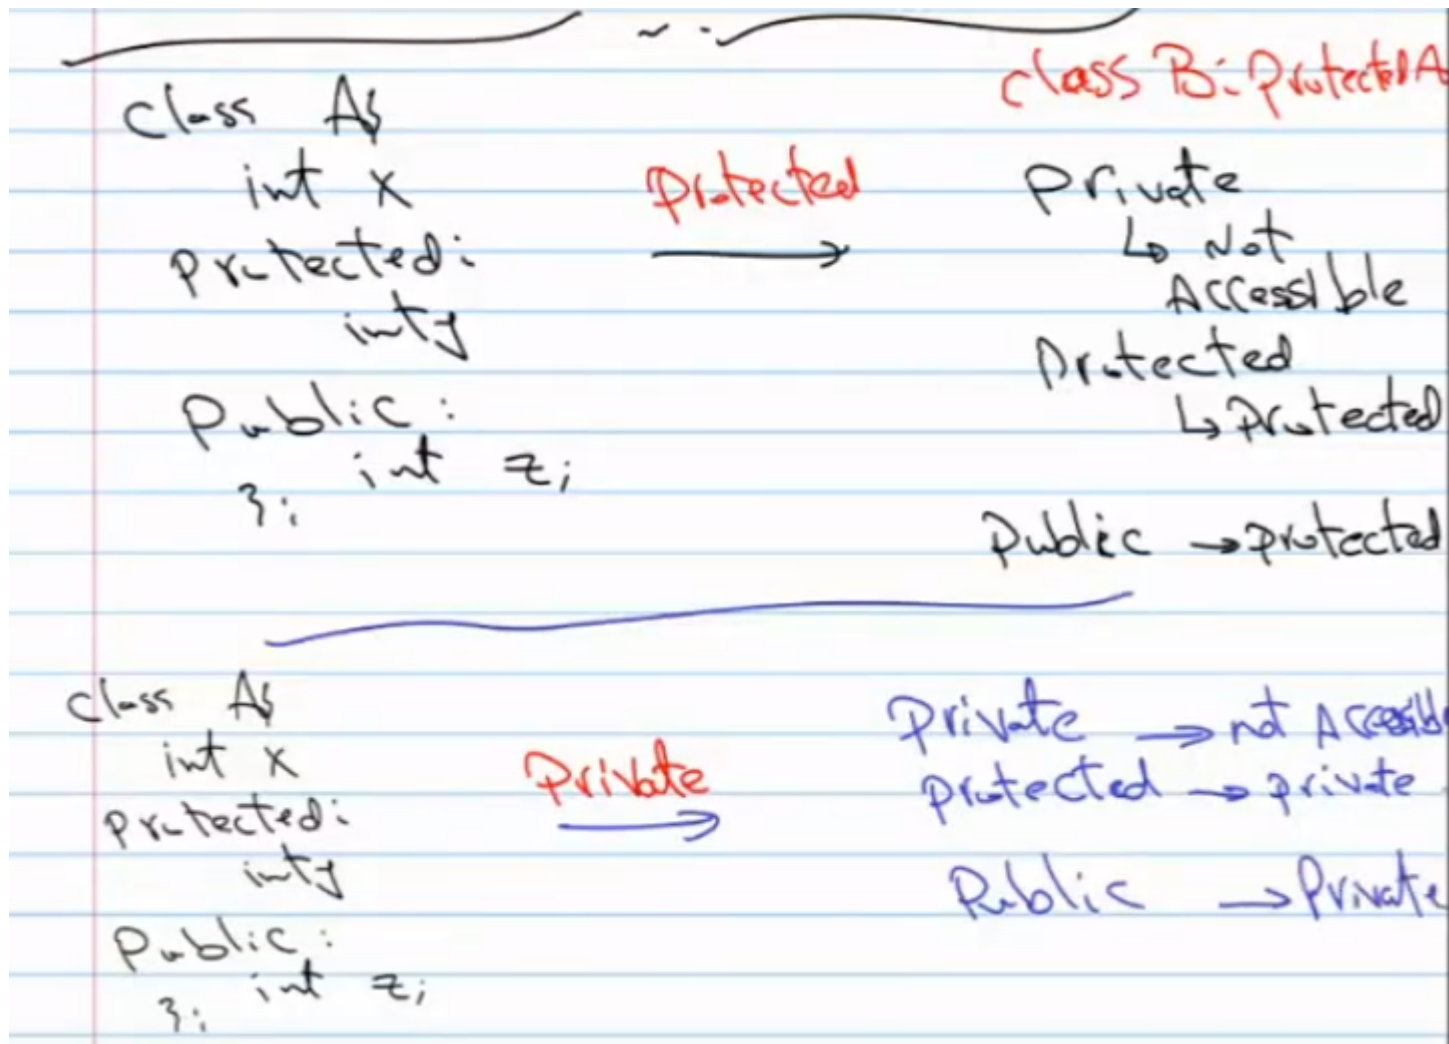 class B: Protected A
class A{
int x
Protected:
int y
Public:
int z;
};
Protected
Private
↳ Not
Accessible
Protected
↳ Protected
Public → protected
class A{
int x
Protected:
int y
Public:
int z;
};
Private
Private → not Accessibl
protected → private
Public → Private